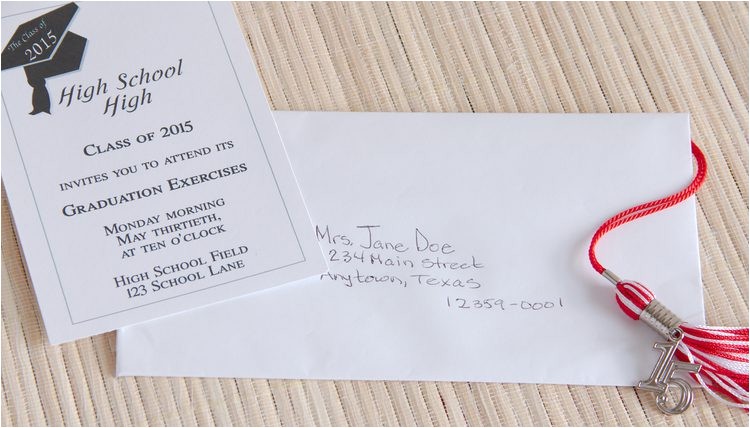 The Class of
2015
High School
High
Class of 2015
invites you to attend its
Graduation Exercises
Monday morning
May thirtieth,
at ten o'clock
High School Field
123 School Lane
Mrs. Jane Doe
234 Main Street
Anytown, Texas
12359-0001
15